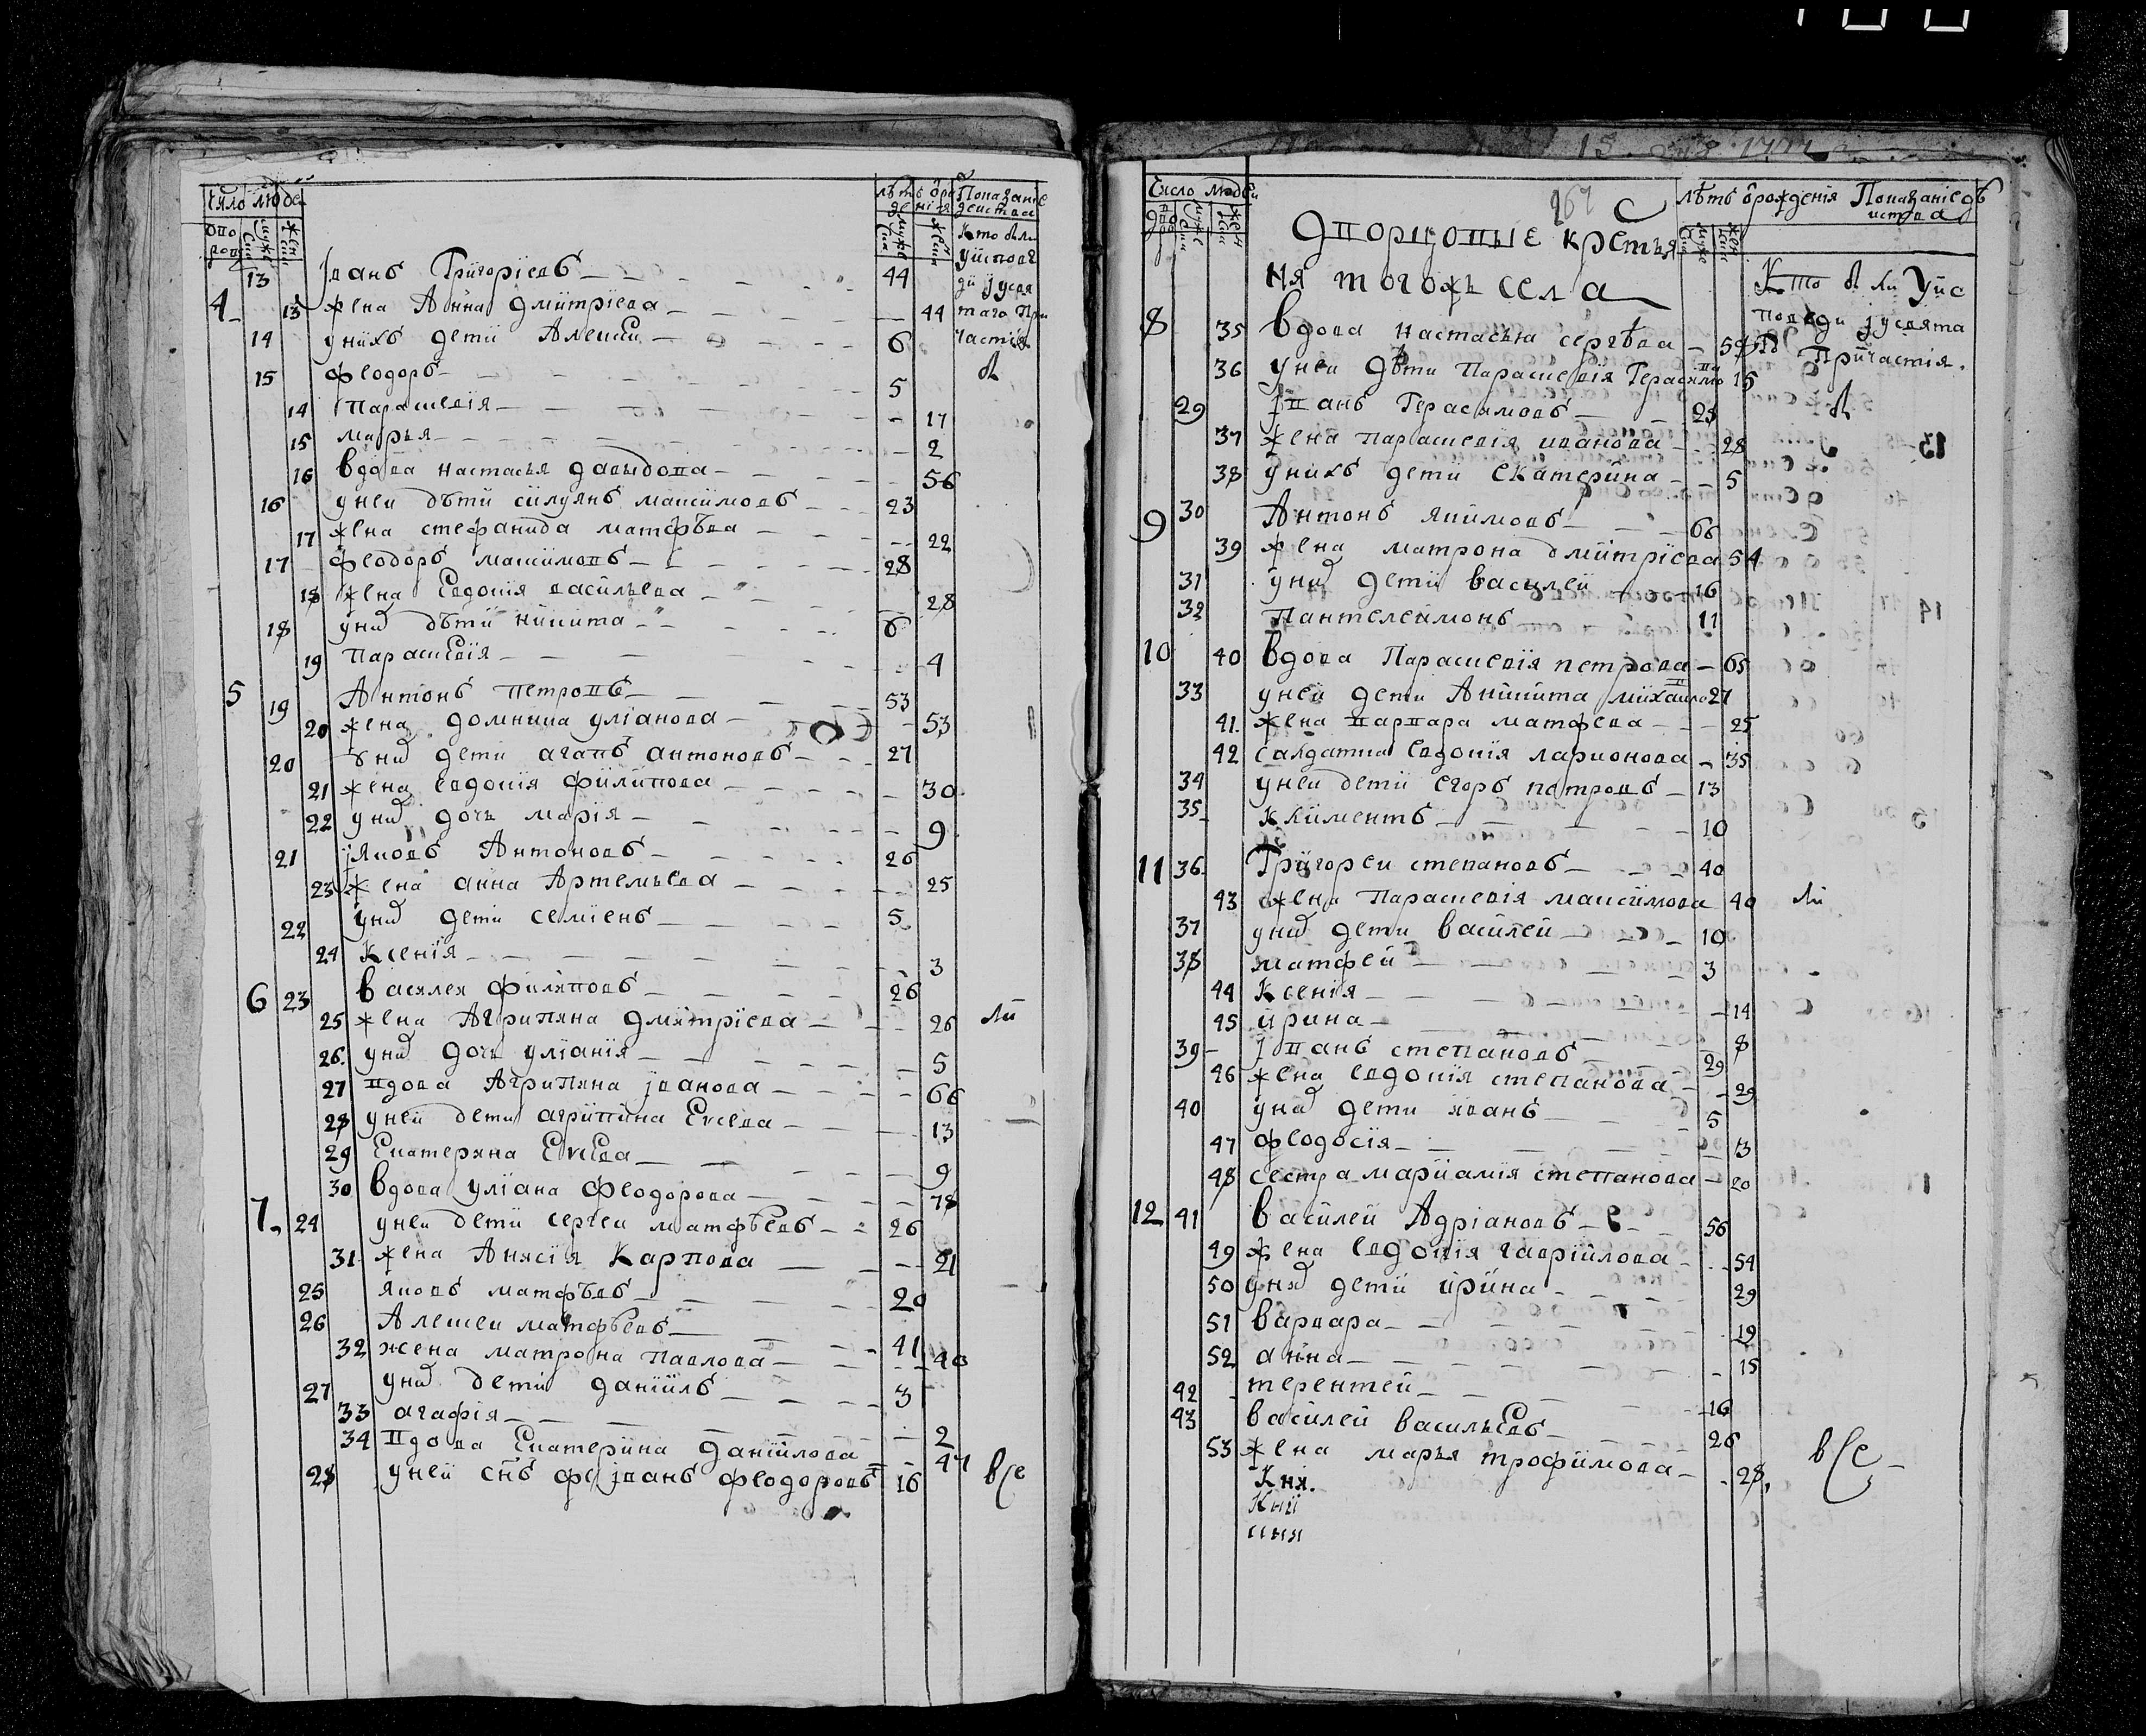 Число людей
лѣтъ ѿ рождения
Показание действа
дворовъ
мужеска
женска
мужеска
женска
Кто были
у исповѣ
ди и у свя
таго При
частія
13 Іванъ Григоріевъ 44
4 13 жена Анна Дмитріева 44
14 у нихъ дети Алексеи 6
15 Феодоръ 5
14 Параскевія 17
15 Марья 2
16 вдова настасья давыдова 56
16 у неи дѣти силуянъ максимовъ 23
17 жена стефанида матфѣева 22
17 феодоръ максимовъ 28
18 жена Евдокія васильева 28
18 у них дѣти никита 6
19 Параскевія 4
5 19 Антонъ петровъ 53
20 жена домникия уліанова 53
20 у них дети агапъ антоновъ 27
21 жена евдокія филипова 30
22 у них дочь марія 9
21 іяковъ Антоновъ 26
23 жена анна Артемьева 25
22 у них дети семіенъ 5
24 Ксенія 3
6 23 василеи филиповъ 26
25 жена Агрипина Дмитріева 26
бы
26 у них дочь уліанія 5
27 вдова Агрипина іванова 66
28 у неи дети агрипина Евсеева 13
29 Екатерина Евсеева 9
30 вдова уліана Феодорова 78
7 24 у неи дети сергеи матфѣевъ 26
31 жена Анисія Карпова 21
25 яковъ матфѣевъ 20
26 Алексеи матфѣевъ 41
32 жена матрона павлова 40
27 у них дети даніилъ 3
33 агафія 2
34 вдова Екатерина Даніилова 47
28 у неи снъ іванъ феодоровъ 16
все
167
Число людеи
лѣтъ ѿ рождения
Показание дѣиства
Дворцовые крестья
ня тогожъ села
Кто были у ис
поведи и у свята
го Причастія.
8 35 вдова настасья сергѣева 59
36 у неи дѣти Параскевія Герасимо 15
29 Іванъ Герасимовъ 25
37 жена параскевія иванова 28
38 у нихъ дети екатерина 5
9 30 Антонъ якимовъ 66
39 жена матрона дмитріева 54
31 у них дети василеи 16
32 Пантелеимонъ 11
10 40 вдова Параскевія петрова 65
33 у неи дети Аникита михаило 27
41 жена варвара матфеева 25
42 салдатка евдокія ларионова 35
34 у неи дети егоръ петровъ 13
35 Климентъ 10
11 36 Григореи степановъ 40
43 жена Параскевія максимова 40
бы
37 у них дети василеи 10
38 матфеи 3
44 Ксенія 14
45 ирина 8
39 іванъ степановъ 29
46 жена евдокія степанова 29
40 у них дети иванъ 5
47 феодосія 13
48 сестра мариамія степанова 20
12 41 василеи Адріановъ 56
49 жена евдокія гавріилова 54
50 у них дети ирина 29
51 варвара 19
52 анна 15
42 терентеи 16
43 василеи васильевъ 26
53 жена марья трофимова 28
все